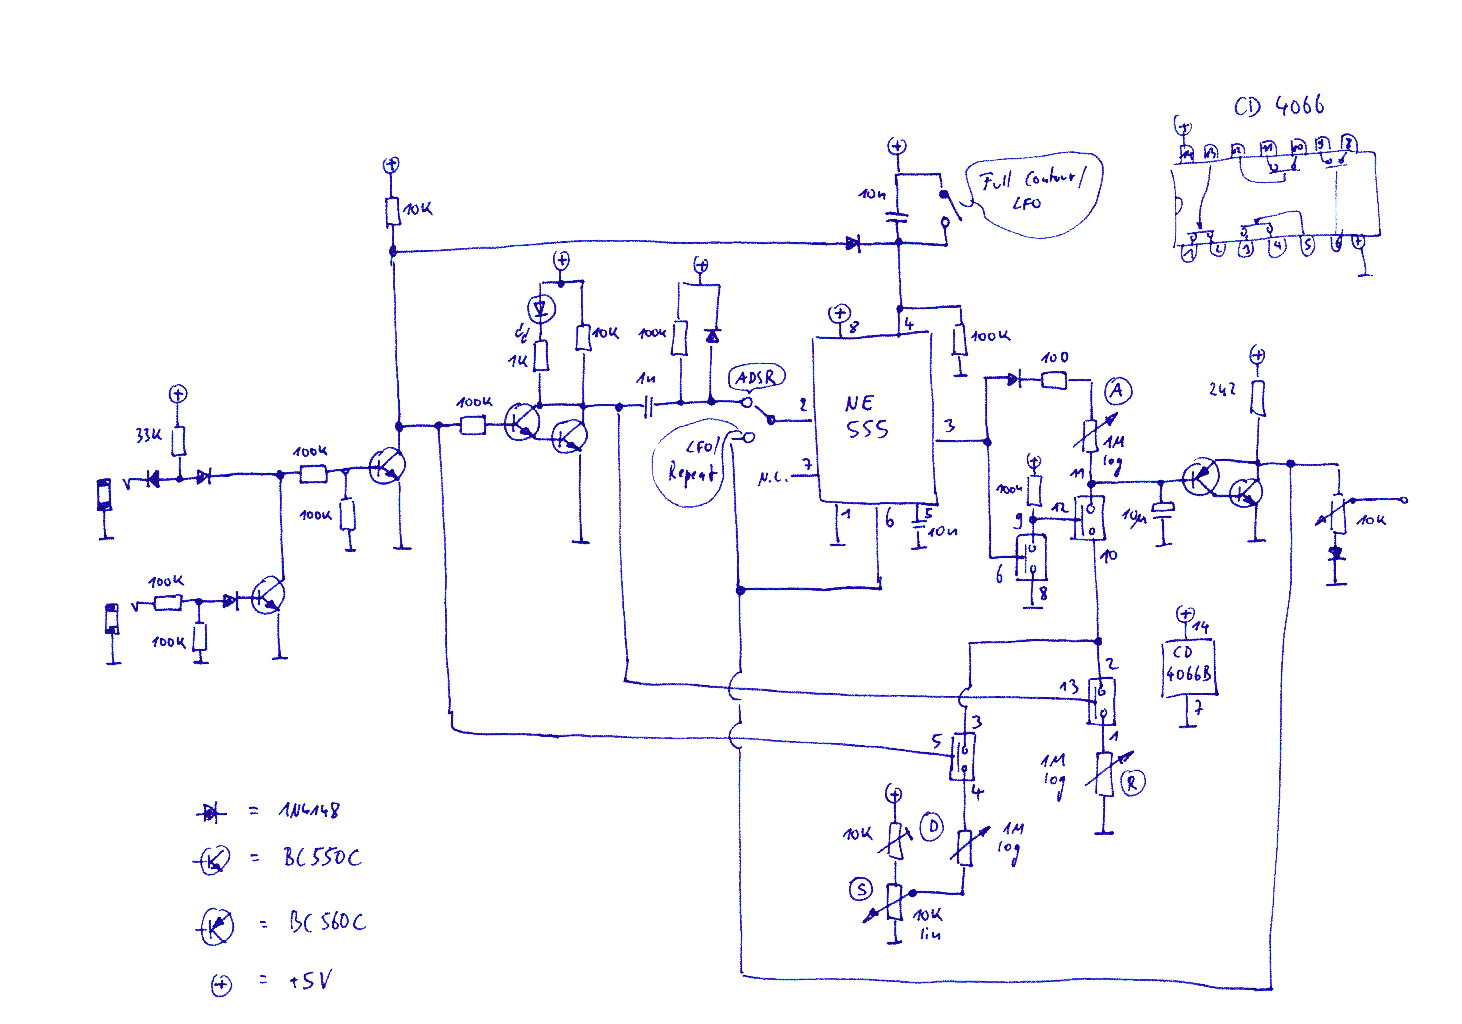 CD 4066
+
14 13 12 11 10 9 8
1 2 3 4 5 6 7
+
10K
+
10n
Full Contour/
LFO
+
1K
10K
+
100K
+
8
4
100K
1n
ADSR
2
NE
555
3
LFO/
Repeat
7
N.C.
1
6
5
10n
100
A
1M
log
11
+
2k2
+
33K
100K
100K
100K
+
100k
9
12
10µ
10K
6
8
10
100K
100K
2
13
1
+
14
CD
4066B
7
3
5
4
1M
log
R
+
10K
D
1M
log
S
10K
lin
= 1N4148
= BC550C
= BC560C
+ = +5V